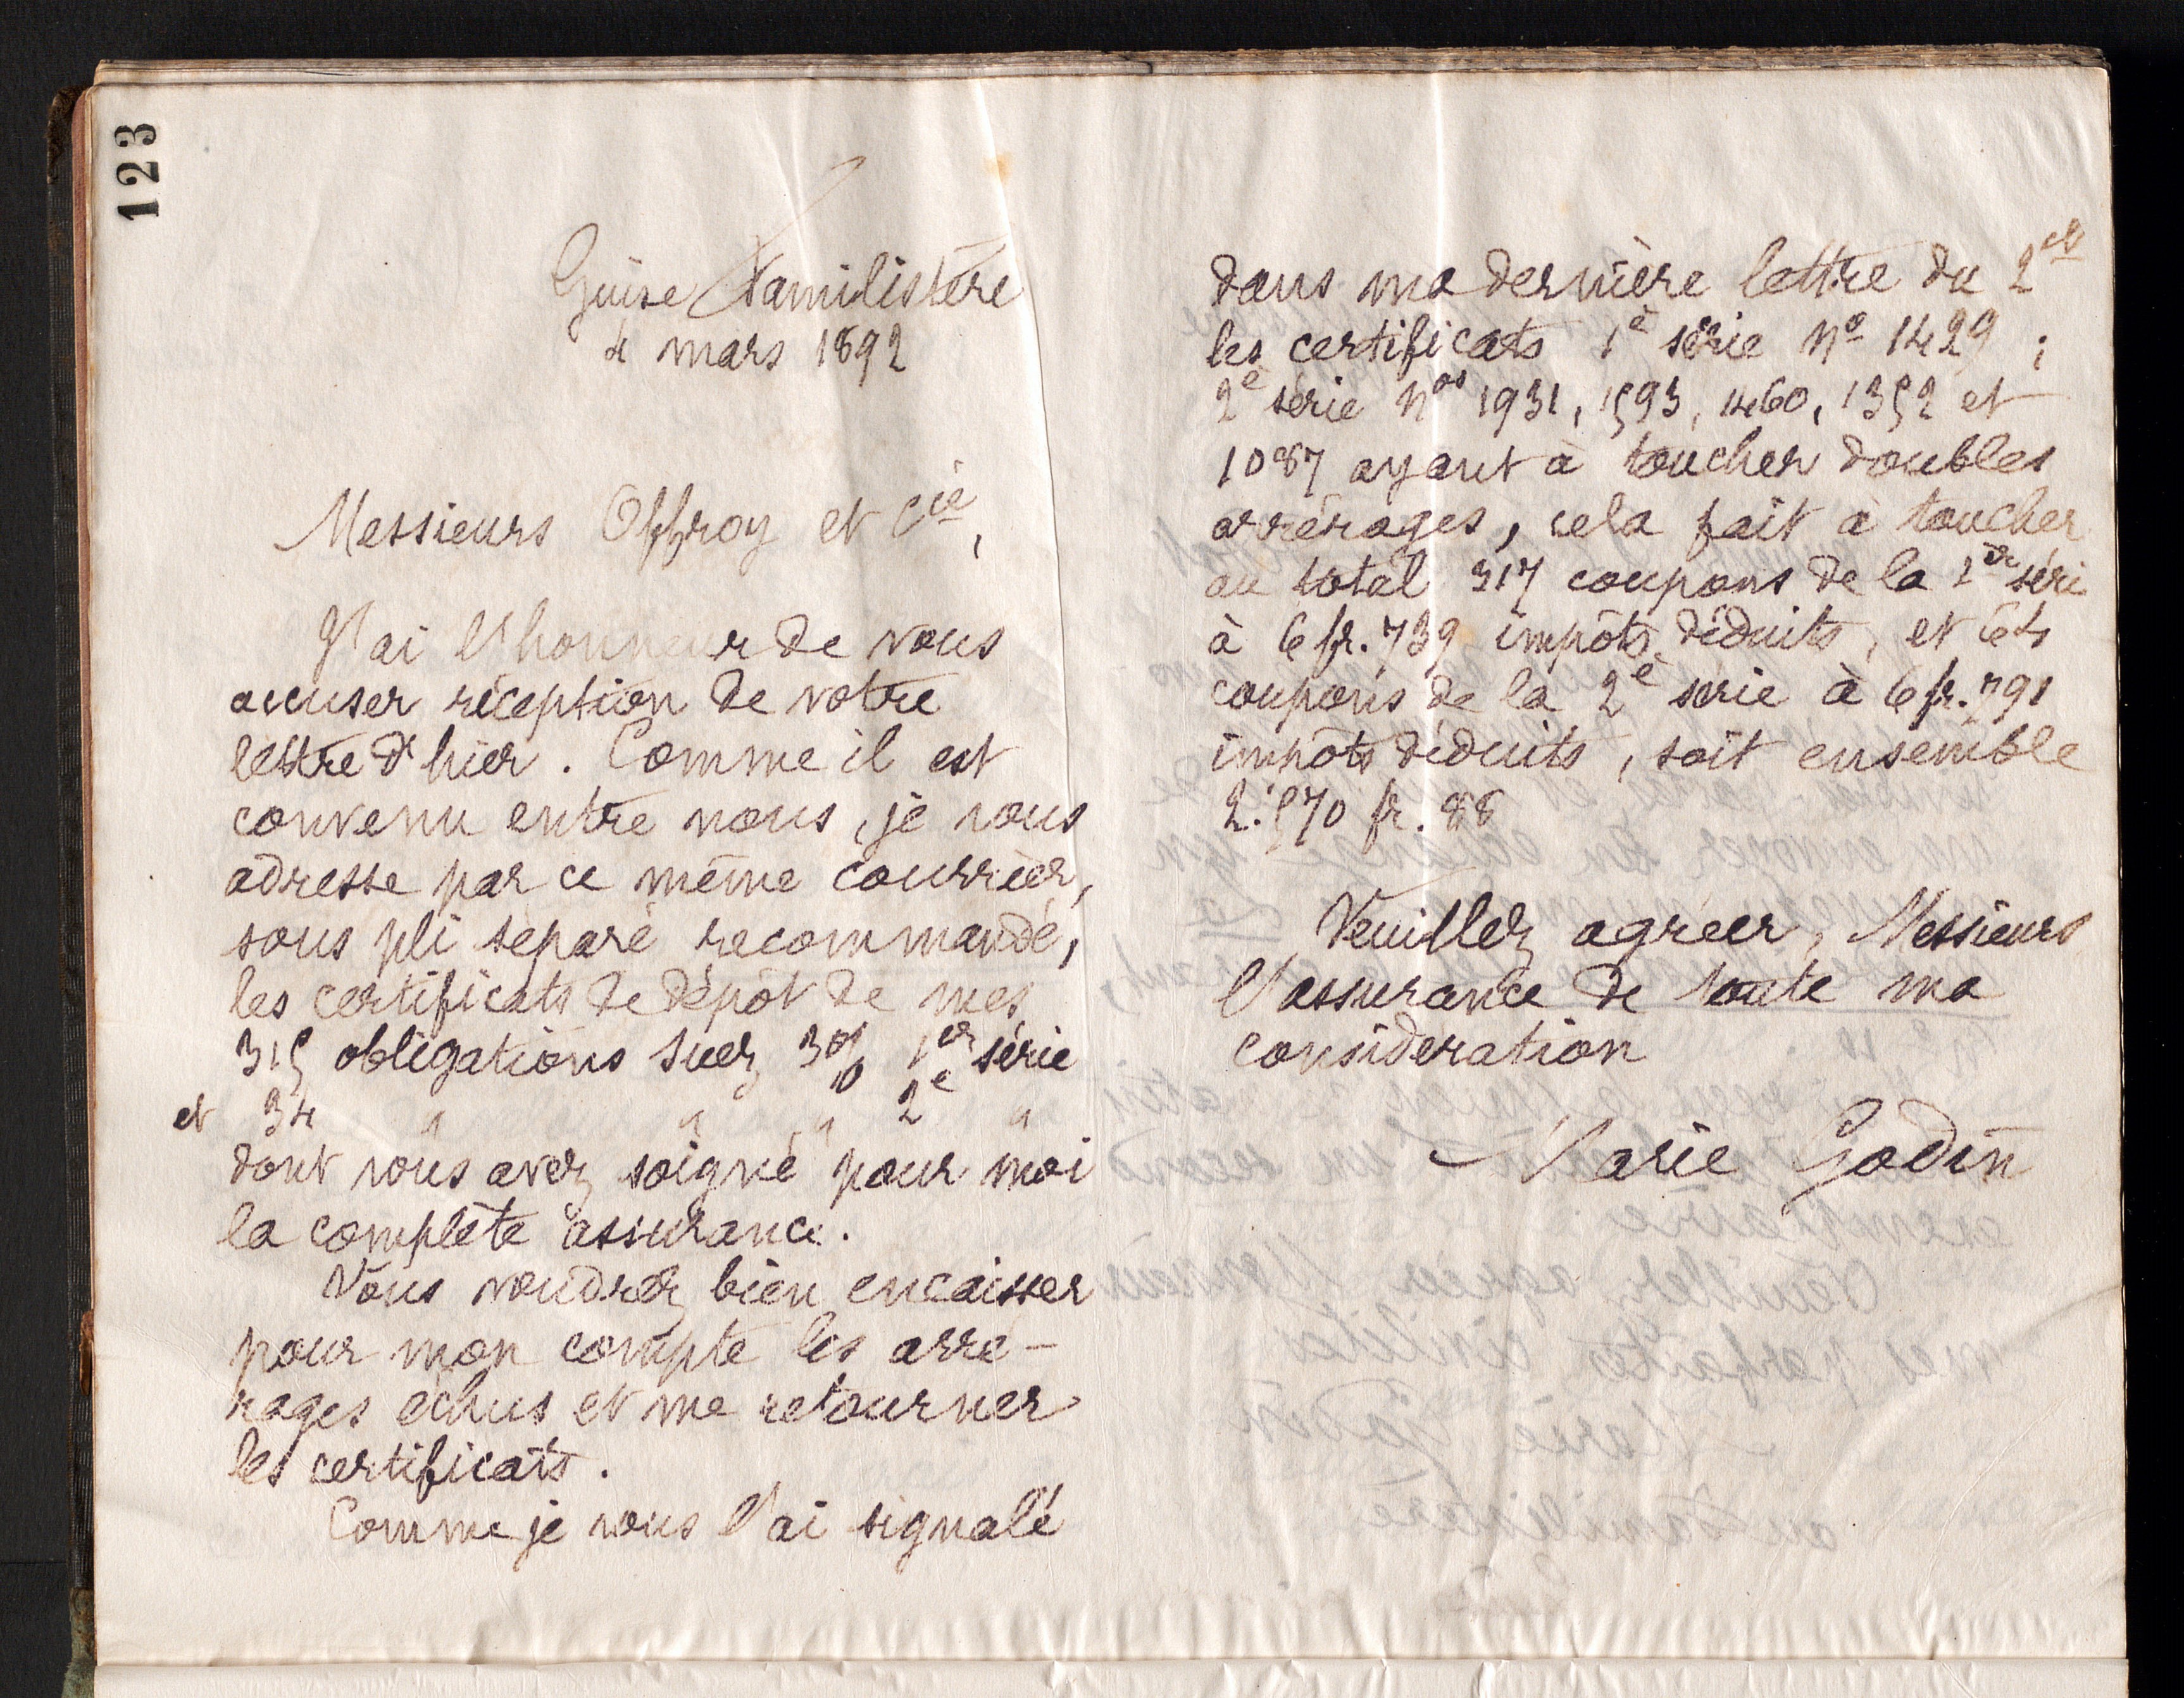 123
Guise Familistère
4 mars 1892
Messieurs Offroy et Cie,
J'ai l'honneur de vous
accuser réception de votre
lettre d'hier. Comme il est
convenu entre nous, je vous
adresse par ce même courrier,
sous pli séparé recommandé,
les certificats de dépôt de mes
315 obligations Suez 3% 1er série
et 34 " " " 2e "
dont vous avez soigné pour moi
la complète assurance.
Vous voudrez bien encaisser
pour mon compte les arré-
rages échus et me retourner
les certificats.
Comme je vous l'ai signalé
dans ma dernière lettre du 2 ct
les certificats 1e série No 1429 ;
2e série Nos 1931, 1593, 1460, 1352 et
1087 ayant à toucher doubles
arrérages, cela fait à toucher
au total 317 coupons de la 1ere séri
à 6 fr. 739 impôts déduits, et 64
coupons de la 2e série à 6 fr. 791
impôts déduits, soit ensemble
2.570 fr. 88
Veuillez agréer, Messieurs
l'assurance de toute ma
considération
Marie Godin